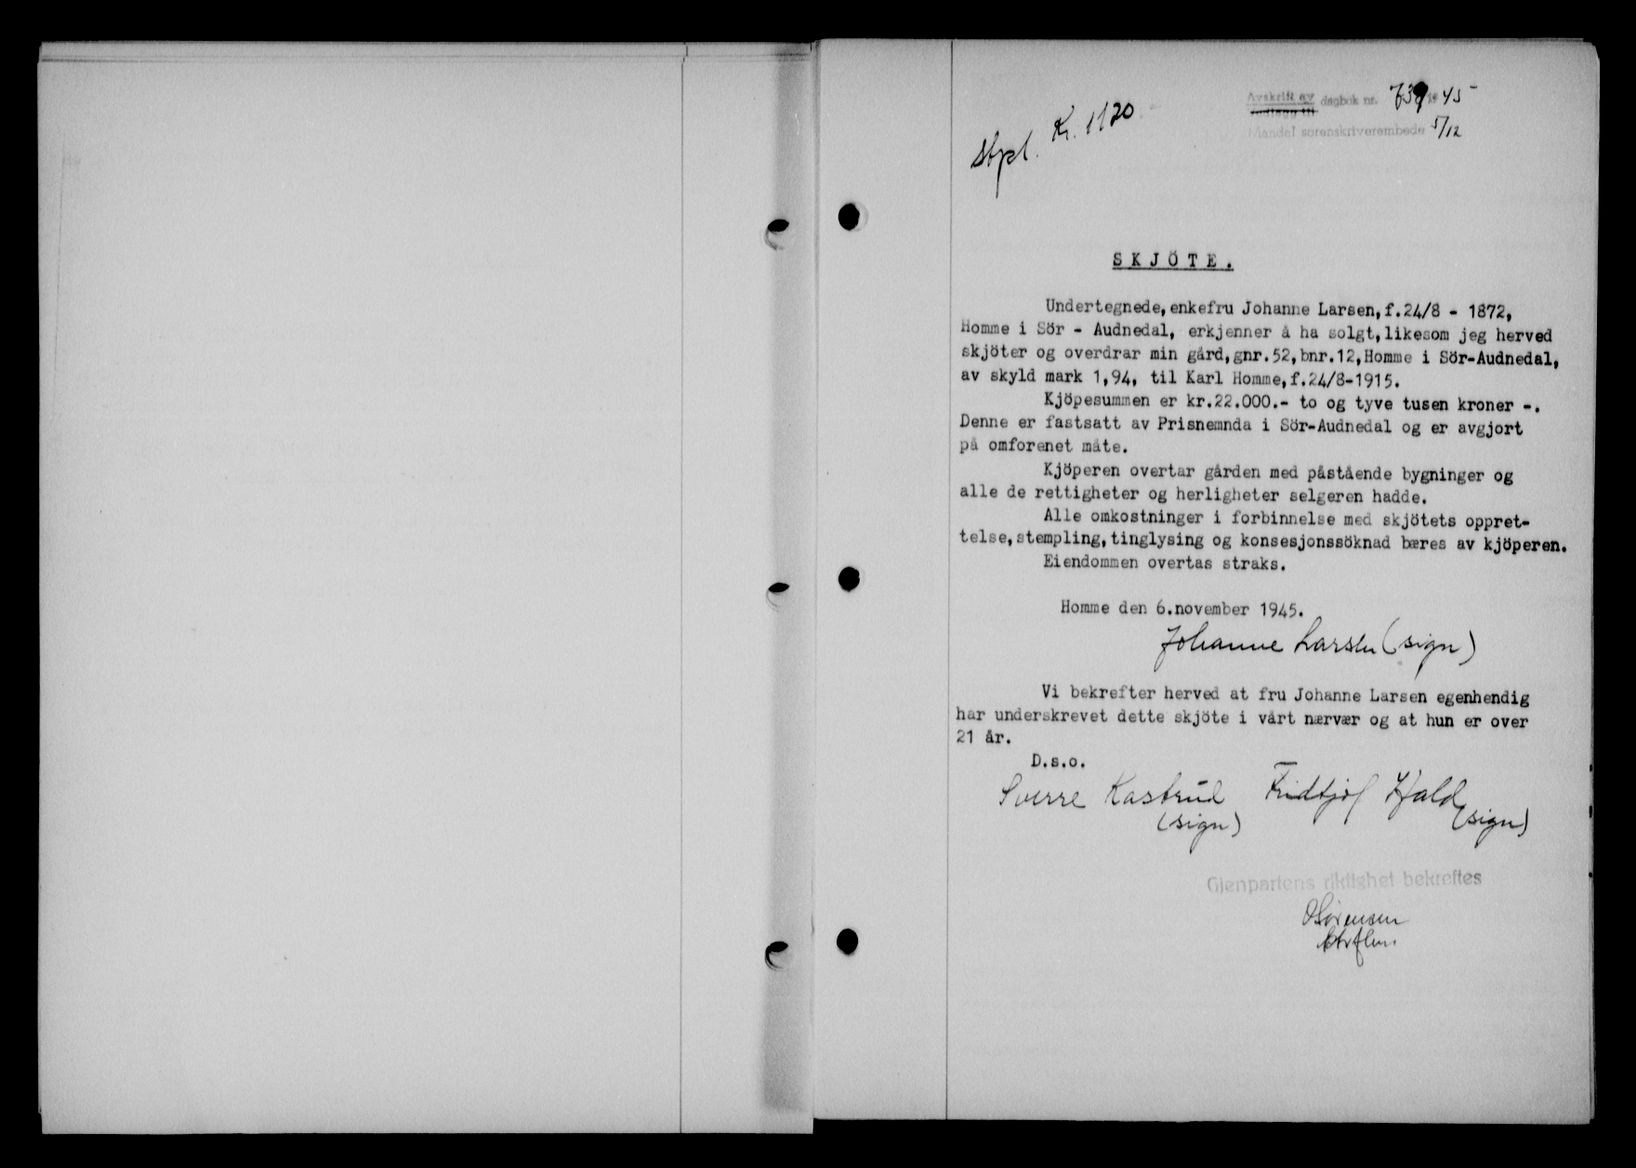 Avskrift av dagbok nr. 739 19 45
Mandal sorenskriverembede 5/12
Stpl. Kr. 1120
SKJÖTE.
Undertegnede, enkefru Johanne Larsen, f.24/8 - 1872,
Homme i Sör - Audnedal, erkjenner å ha solgt, likesom jeg herved
skjöter og overdrar min gård, gnr.52, bnr.12, Homme i Sör-Audnedal,
av skyld mark 1,94, til Karl Homme, f.24/8-1915.
Kjöpesummen er kr.22.000.- to og tyve tusen kroner -.
Denne er fastsatt av Prisnemnda i Sör-Audnedal og er avgjort
på omforenet måte.
Kjöperen overtar gården med påstående bygninger og
alle de rettigheter og herligheter selgeren hadde.
Alle omkostninger i forbinnelse med skjötets oppret-
telse, stempling, tinglysing og konsesjonssöknad bæres av kjöperen.
Eiendommen overtas straks.
Homme den 6.november 1945.
Johanne Larsen (sign)
Vi bekrefter herved at fru Johanne Larsen egenhendig
har underskrevet dette skjöte i vårt nærvær og at hun er over
21 år.
D.s.o.
Sverre Kastrud Fridtjof Hald
(sign) (sign)
Gjenpartens riktighet bekreftes
OSörensen